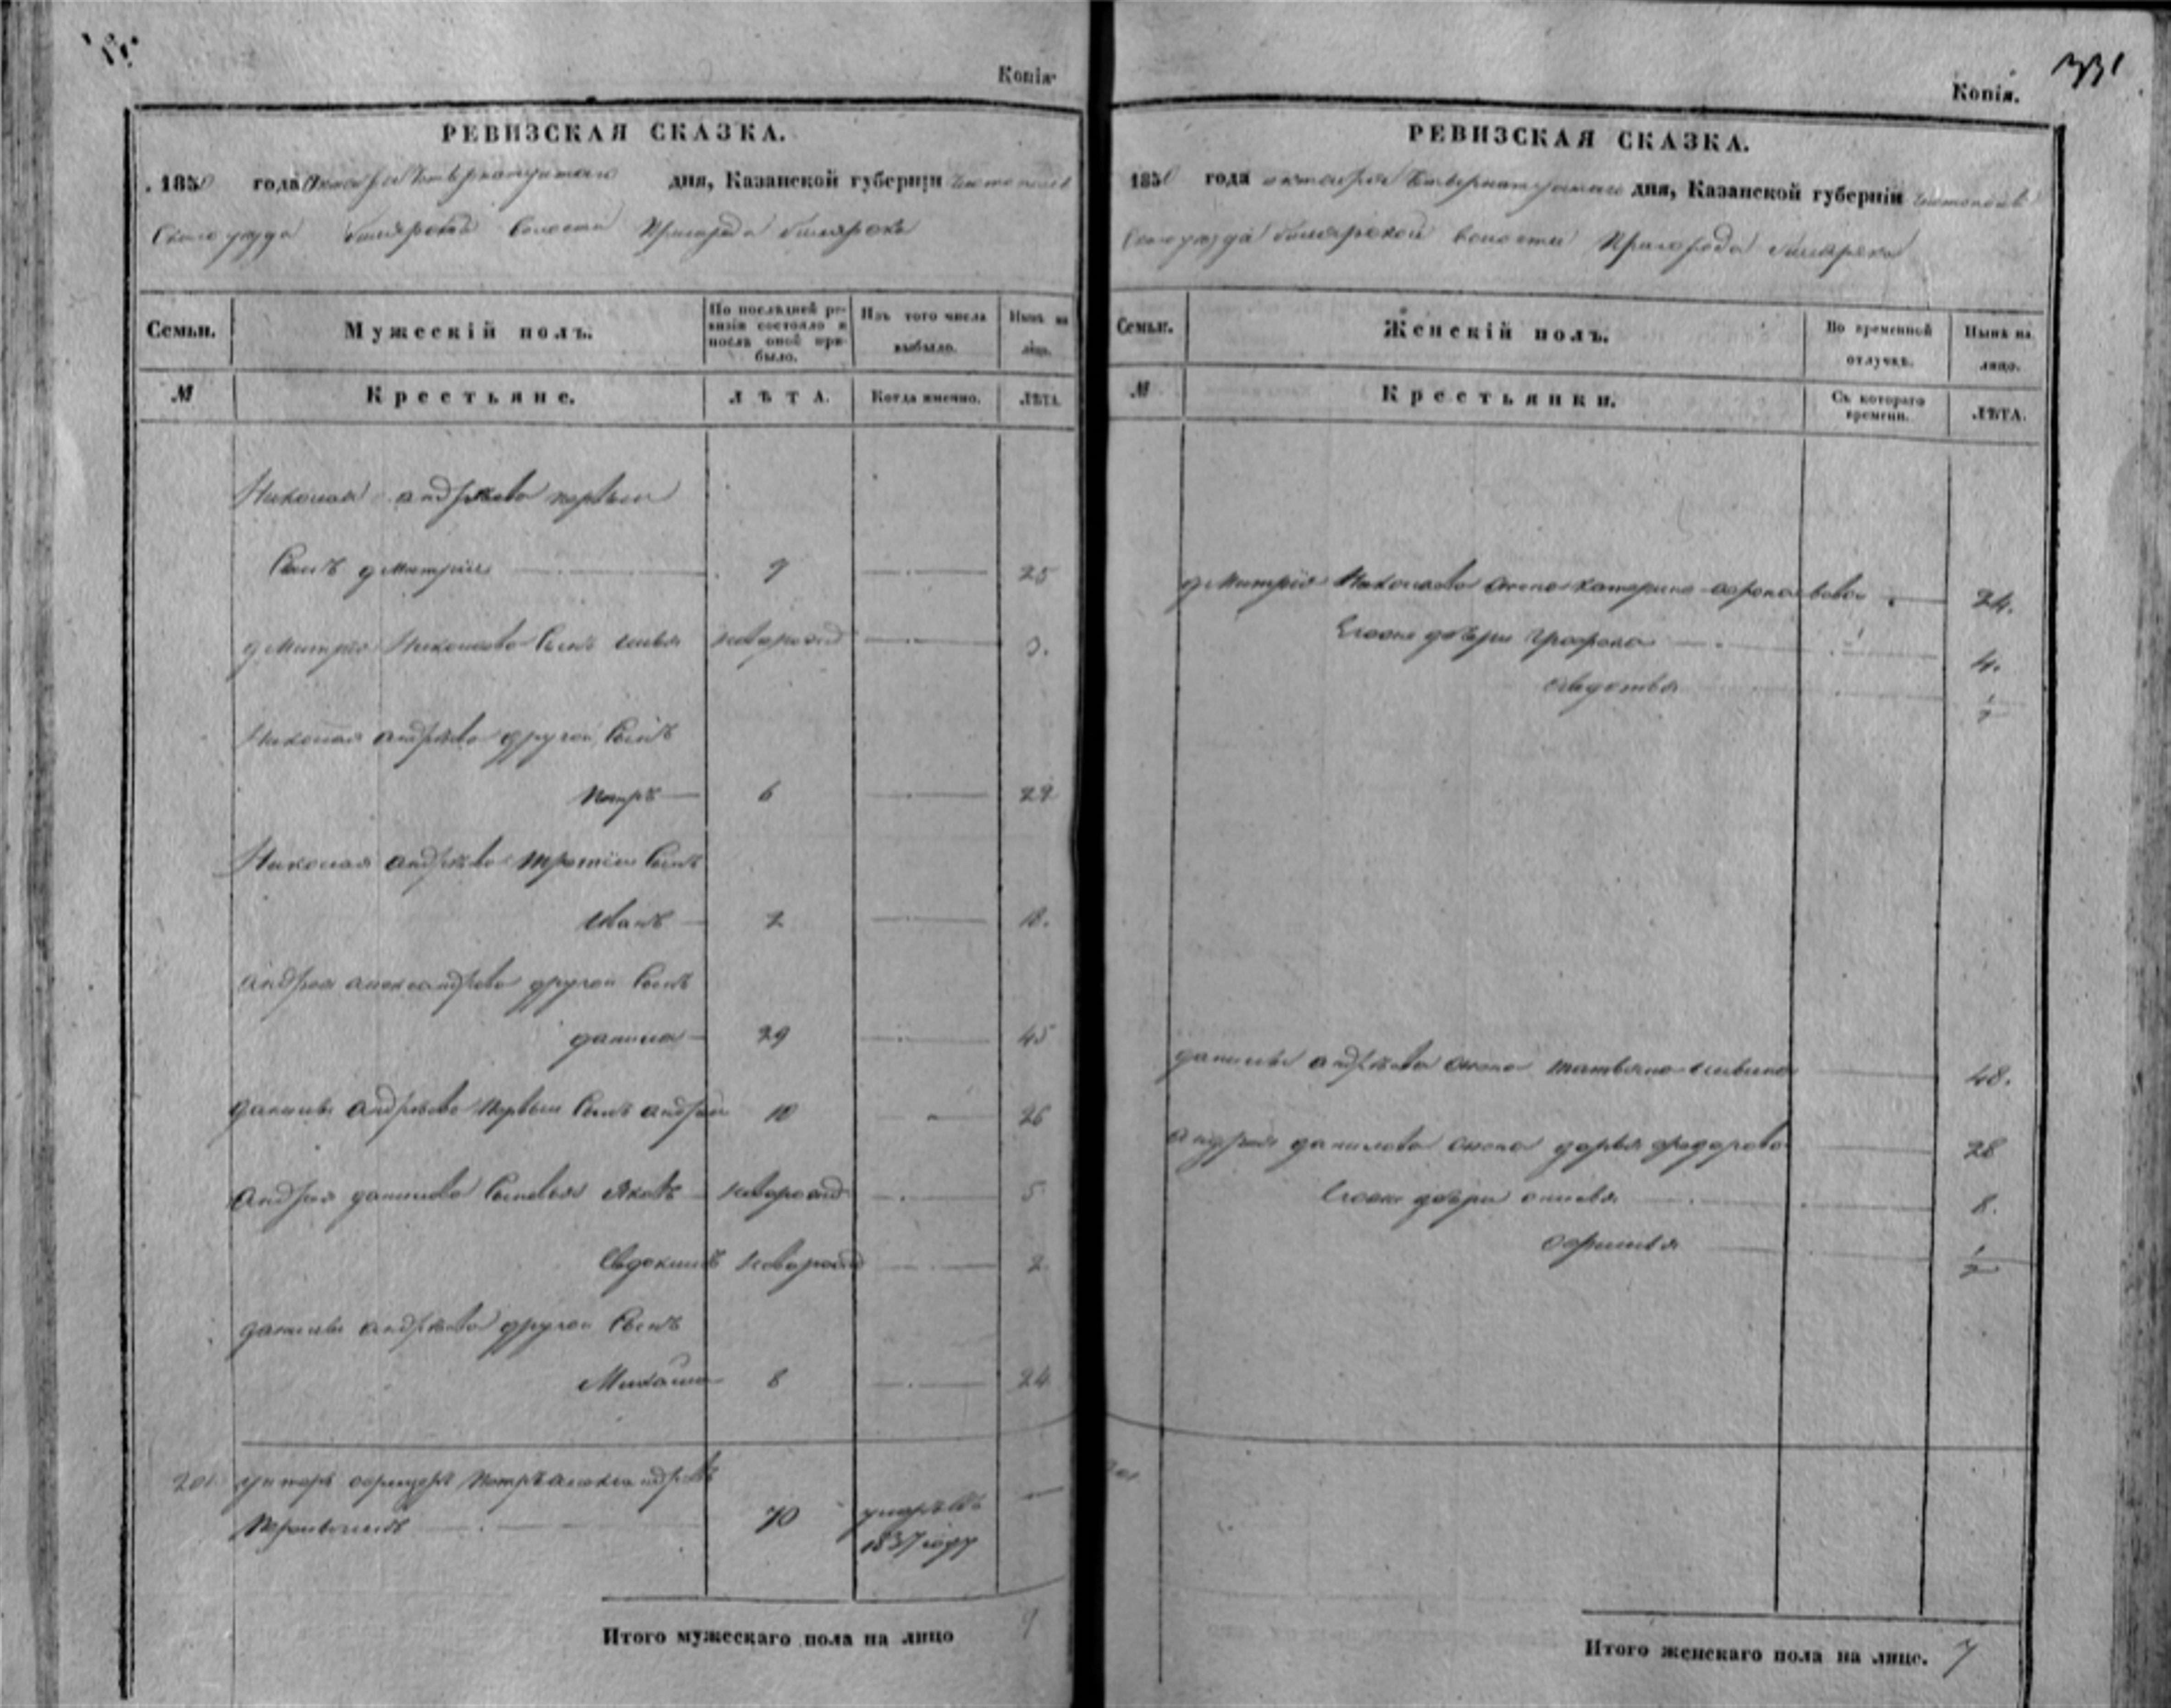 Копія
РЕВИЗСКАЯ СКАЗКА.
1850 года октября дня, Казанской губерніи Чистополь
скаго уезда Билярской волости Пригорода Билярска
Семьи.
Мужескій полъ.
По послѣдней ревизіи состояло и послѣ оной прибыло.
Изъ того числа выбыло.
Нынѣ на лицо.
№
Крестьяне.
ЛѢТА.
Когда именно.
ЛѢТА
Николая андрѣева первый
Сынъ дмитрий 9 25
дмитрія Николаева Сынъ илья новорожд 3.
Николая андрѣева другой Сынъ
Петръ 6 22
Николая андрѣева третій Сынъ
Иванъ 2 18.
андрея александрова другой Сынъ
данила 29 45
данилы андрѣева первый Сынъ андрей 10 26
Андрея данилова Сыновья Яковъ новорожд 5
Евдокимъ новорожд 2
данилы андрѣева другой Сынъ
Михаила 8 24
201 унтеръ офицеръ Петръ александровъ
70 умеръ въ
1837 году
Итого мужескаго пола на лицо 9
331
Копія.
РЕВИЗСКАЯ СКАЗКА.
1850 года октября дня, Казанской губерніи Чистополь
скаго уезда билярской волости Пригорода билярска
Семьи.
Женскій полъ.
Во временной отлучкѣ.
Нынѣ на лицо.
№
Крестьянки.
Съ котораго времени.
ЛѢТА.
дмитрія Николаева жена катерина 24.
Егоже дочери 4.
½
данилы андрѣева жена татьяна 48.
андрея данилова жена дарья федорова 28
Егоже дочери 8.
офимья ½
201
Итого женскаго пола на лице. 7